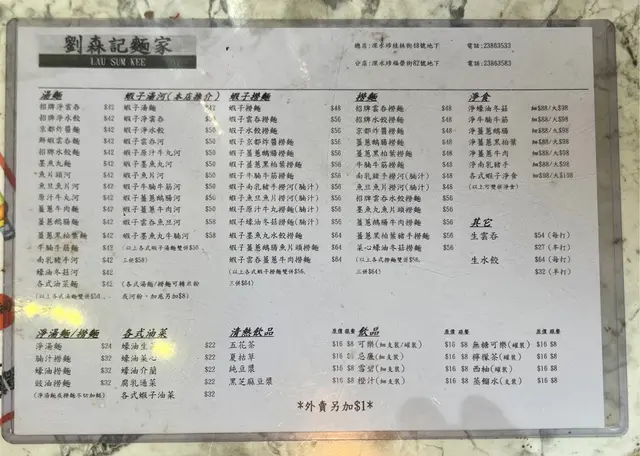 劉森記麵家
LAU SUM KEE
總店:深水埗桂林街48號地下 電話:23863533
分店:深水埗福榮街82號地下 電話:23863583
湯麵
招牌淨雲吞 $42
招牌淨水餃 $42
京都炸醬麵 $42
鮮蝦雲吞麵 $42
招牌水餃麵 $42
墨魚丸麵 $42
魚片頭河 $42
魚旦魚片河 $42
原汁牛丸河 $42
薑蔥牛肉麵 $42
薑蔥鵝腸麵 $42
薑蔥黑柏葉麵 $42
牛腩牛筋麵 $42
南乳豬手河 $42
蠔油冬菇河 $42
各式油菜麵 $42
(以上各式湯麵雙併$50
蝦子湯河(本店推介)
蝦子湯麵 $42
蝦子淨雲吞 $50
蝦子淨水餃 $50
蝦子雲吞河 $50
蝦子原汁牛丸河 $50
蝦子墨魚丸河 $50
蝦子魚旦魚片河 $50
蝦子牛腩牛筋河 $50
蝦子薑蔥鵝腸河 $50
蝦子薑蔥牛肉河 $50
蝦子雲吞魚旦河 $58
蝦子墨魚丸牛腩河 $58
(以上各式蝦子湯麵雙併$58,
三併$68)
(各式湯麵/撈麵可轉米粉
或河粉,加蔥另加$8)
蝦子撈麵
蝦子撈麵 $48
蝦子雲吞撈麵 $56
蝦子水餃撈麵 $56
蝦子京都炸醬撈麵 $56
蝦子薑蔥鵝腸撈麵 $56
蝦子薑蔥黑柏葉撈麵 $56
蝦子牛腩牛筋撈麵 $56
蝦子南乳豬手撈河(腩汁) $56
蝦子魚旦魚片撈河(腩汁) $56
蝦子原汁牛丸撈麵(腩汁) $56
蝦子蠔油冬菇撈麵(腩汁) $56
蝦子墨魚丸水餃撈麵 $64
蝦子薑蔥鵝腸魚片頭撈麵 $64
蝦子雲吞薑蔥牛肉撈麵 $64
(以上各式蝦子撈麵雙併$56,
三併$64)
撈麵
招牌雲吞撈麵 $48
招牌水餃撈麵 $48
京都炸醬撈麵 $48
薑蔥鵝腸撈麵 $48
薑蔥黑柏葉撈麵 $48
牛腩牛筋撈麵 $48
南乳豬手撈河(腩汁) $48
魚旦魚片撈河(腩汁) $48
招牌雲吞水餃撈麵 $56
墨魚丸魚片頭撈麵 $56
薑蔥鵝腸牛肉撈麵 $56
薑蔥黑柏葉豬手撈麵 $56
菜心蠔油冬菇撈麵 $56
(以上各式撈麵雙併$56,
三併$64)
淨食
淨蠔油冬菇 細$88/大$98
淨牛腩牛筋 細$88/大$98
淨薑蔥鵝腸 細$88/大$98
淨薑蔥黑柏葉 細$88/大$98
淨薑蔥牛肉 細$88/大$98
淨南乳豬手 細$88/大$98
各式蝦子淨食 細$98/大$108
(以上可雙併淨食)
其它
生雲吞 $54 (每打)
$27 (半打)
生水餃 $64 (每打)
$32 (半打)
淨湯麵/撈麵
淨湯麵 $24
腩汁撈麵 $32
蠔油撈麵 $32
豉油撈麵 $32
(淨湯麵及撈麵不切加餸)
各式油菜
蠔油生菜 $22
蠔油菜心 $22
蠔油介蘭 $22
腐乳通菜 $22
各式蝦子油菜 $32
清熱飲品 原價 跟餐
五花茶 $16 $8
夏枯草 $16 $8
純豆漿 $16 $8
黑芝麻豆漿 $16 $8
飲品 原價 跟餐 原價 跟餐
可樂(細支裝/罐裝) $16 $8 無糖可樂(罐裝) $16 $8
忌廉(細支裝) $16 $8 檸檬茶(罐裝) $16 $8
雪碧(細支裝) $16 $8 西柚(罐裝) $16 $8
橙汁(細支裝) $16 $8 蒸餾水(支裝) $16 $8
*外賣另加$1*